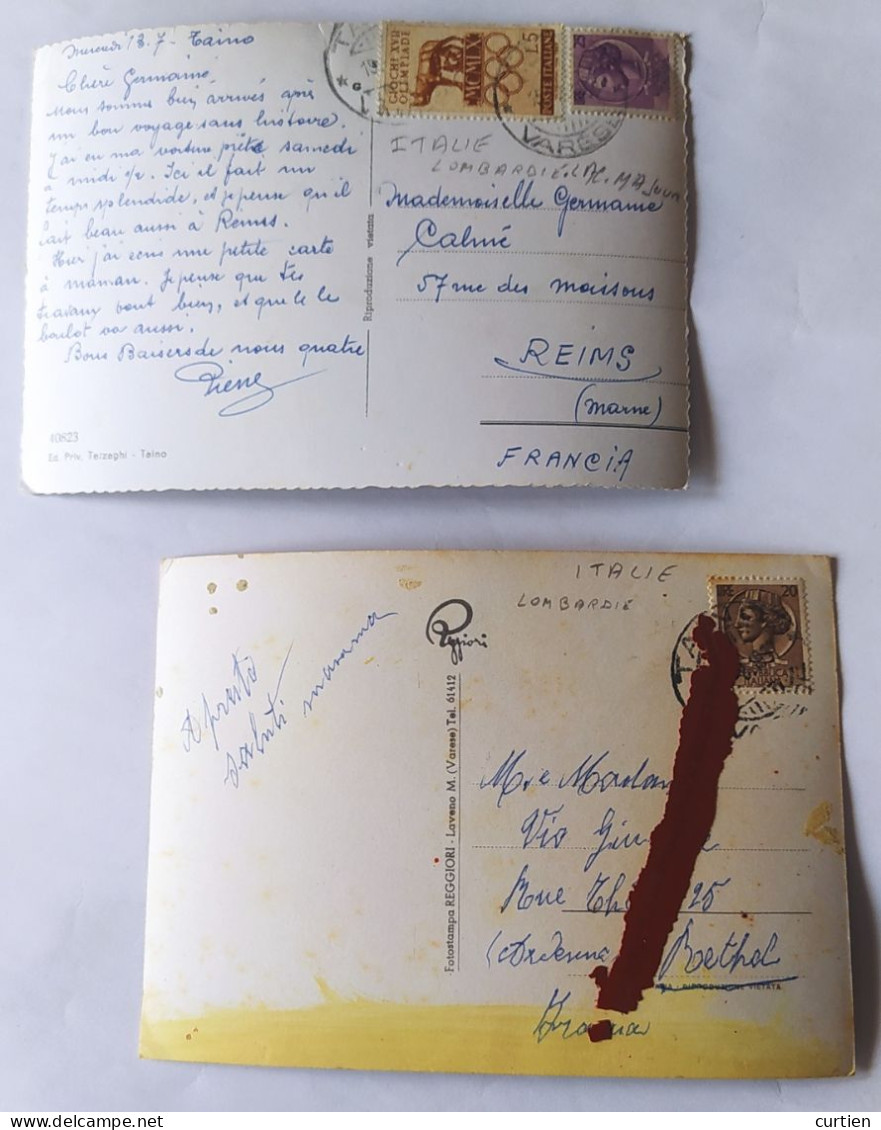 Mercredi 13.7 - Taino
Chère Germaine,
Nous somme bien arrivés après
un bon voyage sans histoire.
J'ai eu ma voiture prête samedi
à midi ½. Ici il fait un
temps splendide, et je pense qu'il
fait beau aussi à Reims.
Hier j'ai écris une petite carte
à maman. Je pense que tes
travaux vont bien, et que le
boulot va aussi.
Bons Baisers de nous quatre
Pierre
40823
Ed. Priv. Telzaghi - Taino
Riproduzione vietata
GIOCHI XVII
OLIMPIADE
MCMLX
L5
POSTE ITALIANE
VARESE
ITALIE
LOMBARDIE
Mademoiselle Germaine
57 rue des maisons
REIMS
(Marne)
FRANCIA
A presto
saluti mamma
Reggiori
Fotostampa REGGIORI - Laveno M. (Varese) Tel. 61412
ITALIE
LOMBARDIE
20
TA
Via
Rue 25
Rethel
RIPRODUZIONE VIETATA
curtien